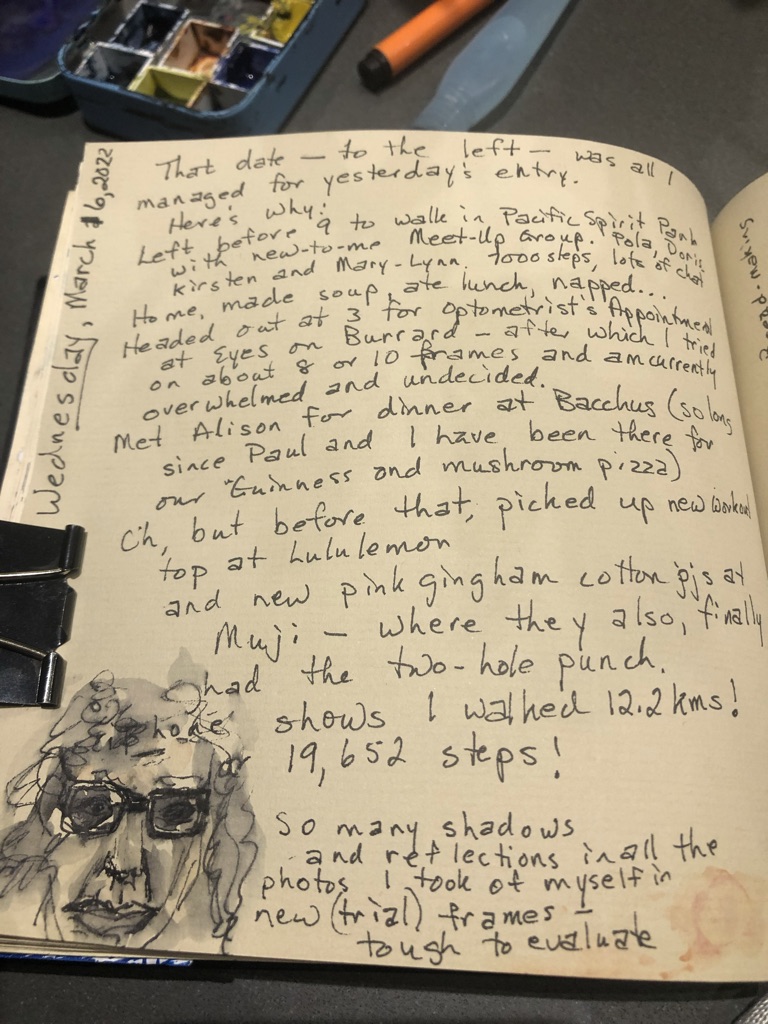 Wednesday, March 16, 2022
That date — to the left — was all I
managed for yesterday's entry.
Here's why:
Left before 9 to walk in Pacific Spirit Park
with new-to-me Meet-Up Group. Pola, Doris,
Kirsten and Mary-Lynn. 7000 steps, lots of chat
Home, made soup, ate lunch, napped...
Headed out at 3 for Optometrist's Appointment
at Eyes on Burrard — after which I tried
on about 8 or 10 frames and am currently
overwhelmed and undecided.
Met Alison for dinner at Bacchus (so long
since Paul and I have been there for
our "Guinness and mushroom pizza)
Oh, but before that, picked up new workout
top at Lululemon
and new pink gingham cotton pjs at
Muji — where they also, finally
had the two-hole punch.
phone shows I walked 12.2 kms!
or 19,652 steps!
So many shadows
and reflections in all the
photos I took of myself in
new (trial) frames —
tough to evaluate